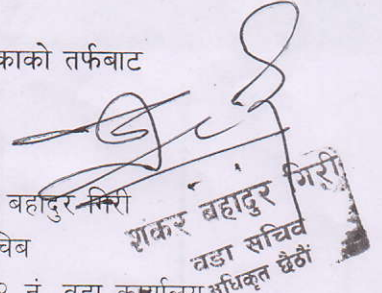 काको तर्फबाट
बहादुर गिरी
चिब
नं. वडा कार्यालय
शंकर बहादुर गिरी
वडा सचिव
अधिकृत छैठौं